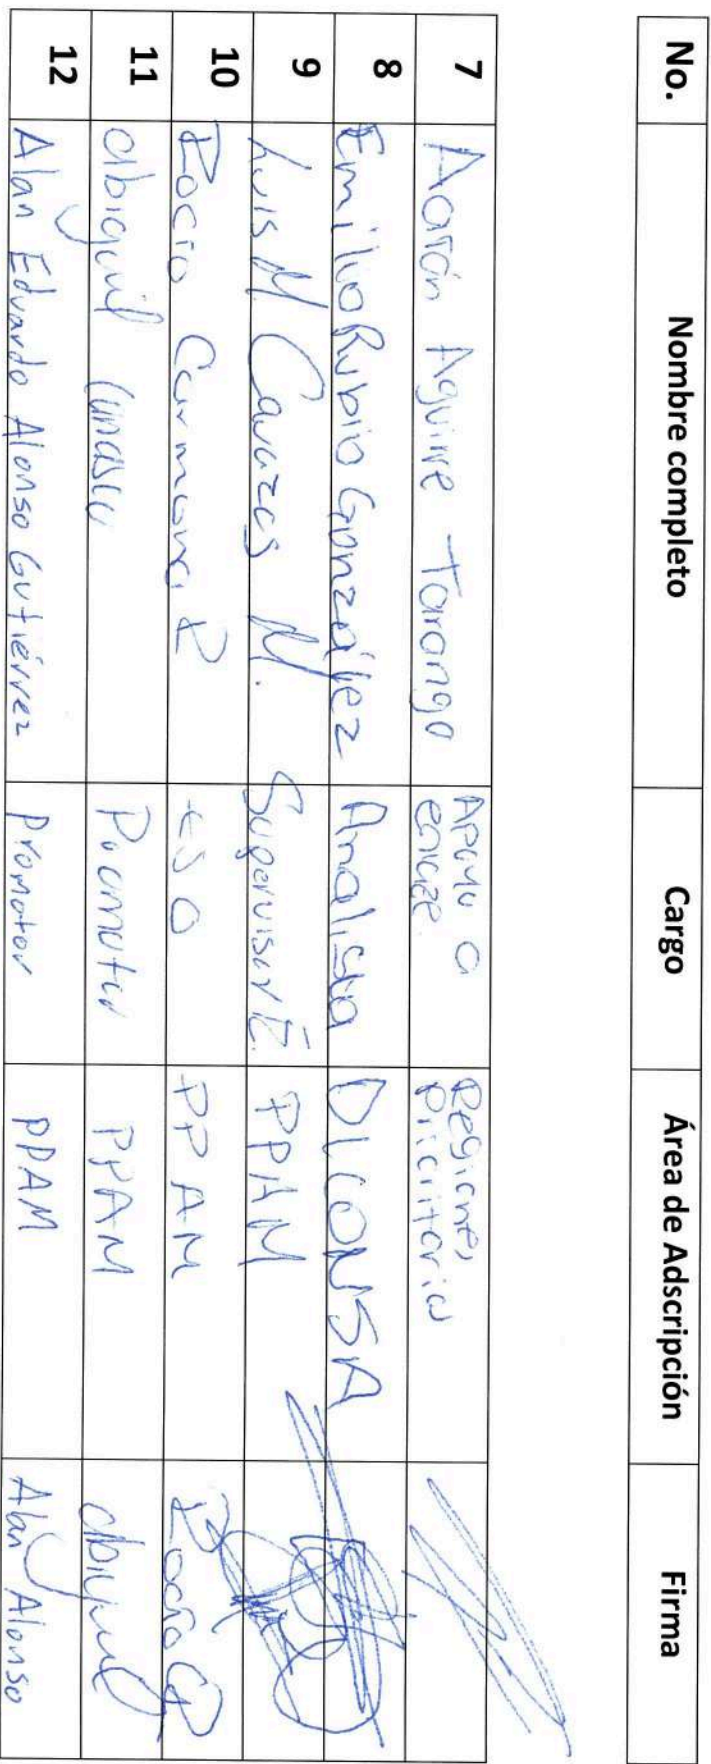 No. Nombre completo Cargo Área de Adscripción Firma
7 Aarón Aguirre Tarango Apoyo a enlace Regiones Prioritarias
8 Emilio Rubio González Analista DICONSA
9 Luis M. Cavazos M. Supervisor E. PPAM
10 Rocío Carmona P PPAM Rocío CP
11 abigail Promotor PPAM abigail
12 Alan Eduardo Alonso Gutiérrez Promotor PPAM Alan Alonso